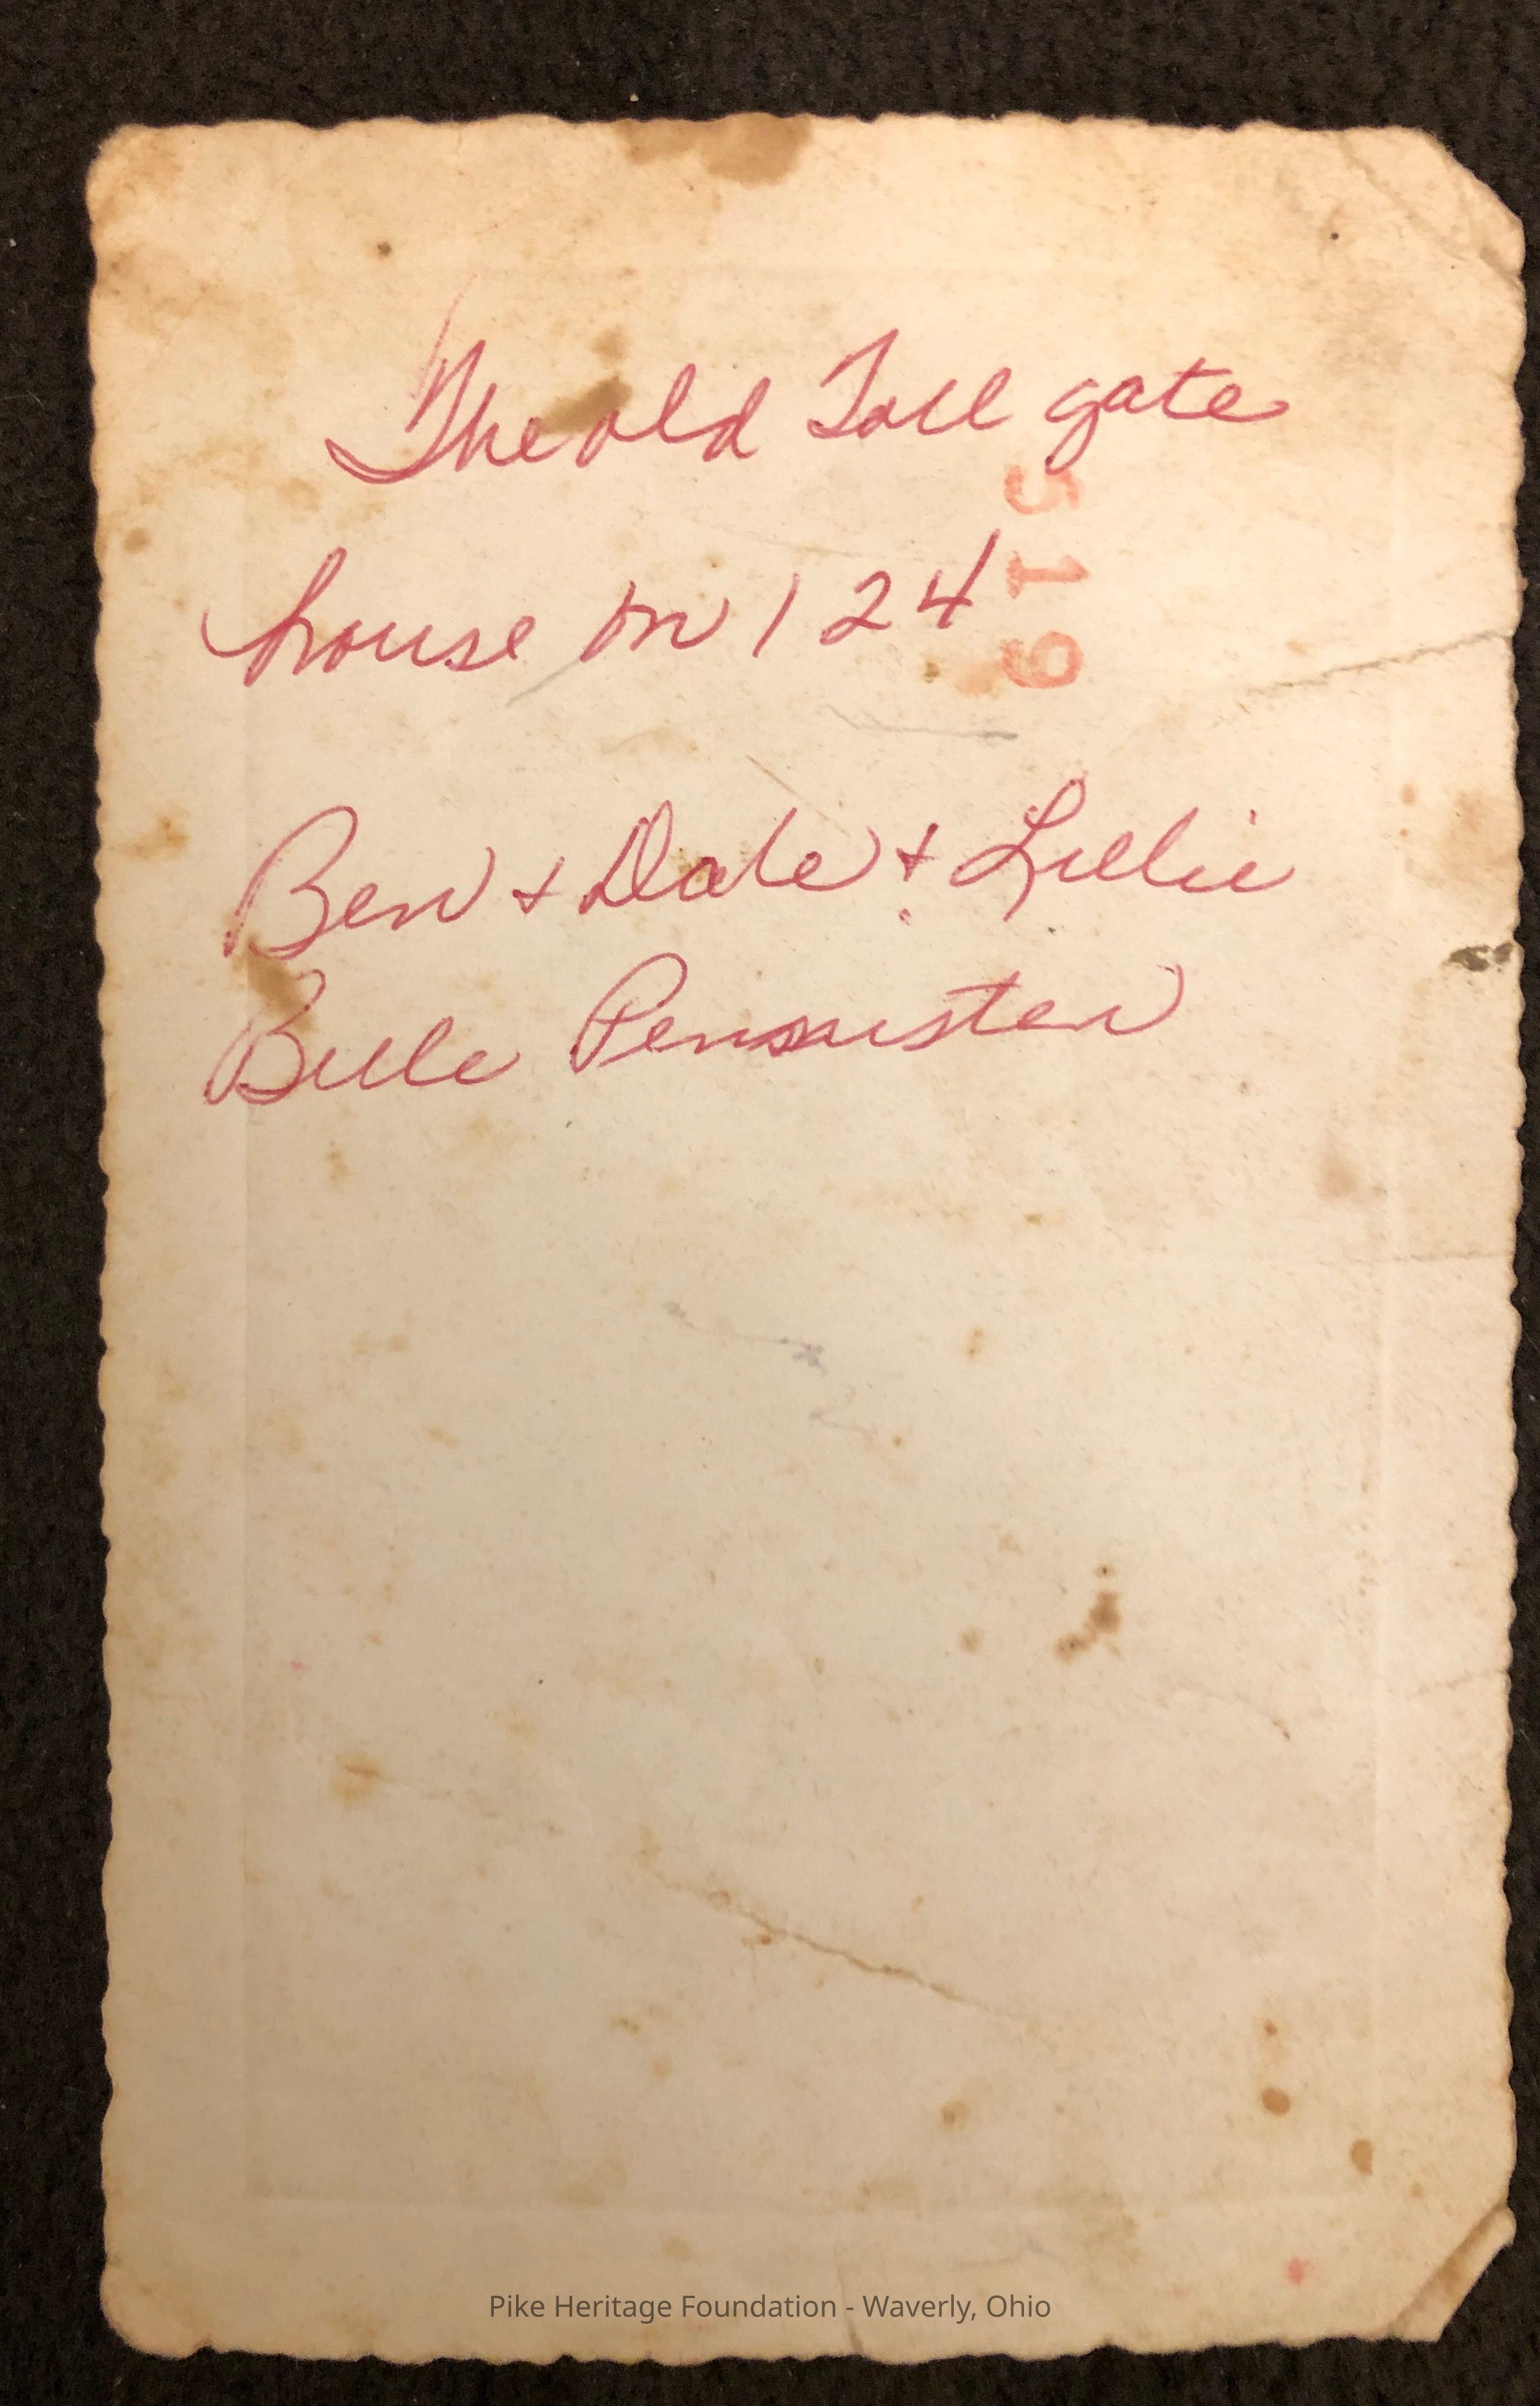 The old Toll gate
house on 124
519
Ben + Dale + Lillie
Belle Pensister
Pike Heritage Foundation - Waverly, Ohio